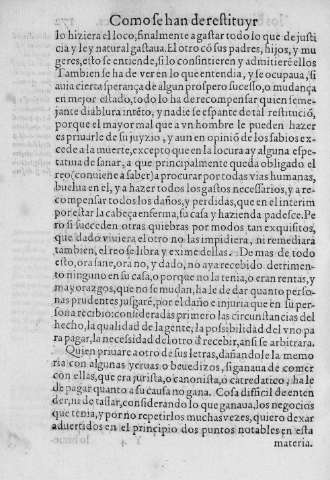 Como se han de restituyr
lo hiziera el loco, finalmente a gastar todo lo que de justi
cia y ley natural gastaua. El otro cõ sus padres, hijos, y mu
geres, esto se entiende, si lo consintieren y admitierē ellos
Tambien se ha de ver en lo que entendia, y se ocupaua, si
auia cierta sperança de algun prospero sucesso, o mudança
en mejor estado, todo lo ha de recompensar quien seme-
jante diablura intēto, y nadie se espante de tal restituciõ,
porque el mayor mal que a vn hombre le pueden hazer
es priuarle de su juyzio, y aun en opiniõ de los sabios ex-
cede a la muerte, excepto que en la locura ay alguna espe-
ctatiua de sanar, a que principalmente queda obligado el
reo (conuiene a saber) a procurar por todas vias humanas,
buelua en el, y a hazer todos los gastos necessarios, y a re-
compensar todos los daños, y perdidas, que en el interim
por estar la cabeça enferma, su casa y hazienda padesce. Pe
ro si succeden otras quiebras por modos tan exquisitos,
que dado viuiera el otro no las impidiera, ni remediara
tambien, el reo se libra y exime dellas. Demas de todo
esto, ora sane, ora no, y dado, no aya recebido detrimen-
to ninguno en su casa, o porque no la tenia, o eran rentas, y
mayorazgos, que no se mudan, ha le de dar quanto perso-
nas prudentes jusgarē, por el daño e injuria que en su per-
sona recibio: consideradas primero las circunstancias del
hecho, la qualidad de la gente, la possibilidad del vno pa
ra pagar, la necessidad del otro d̃ recebir, ansi se arbitrara.
Quien priuare a otro de sus letras, dañandole la memo
ria con algunas yeruas o beuedizos, si ganaua de comer
con ellas, que era jurista, o canonista, o catredatico, ha le
de pagar quanto a su causa no gana. Cosa difficil de enten
der, ni de tassar, considerando lo que ganaua, los negocios
que tenia, y por no repetirlos muchas vezes, quiero dexar
aduertidos en el principio dos puntos notables en esta
materia.